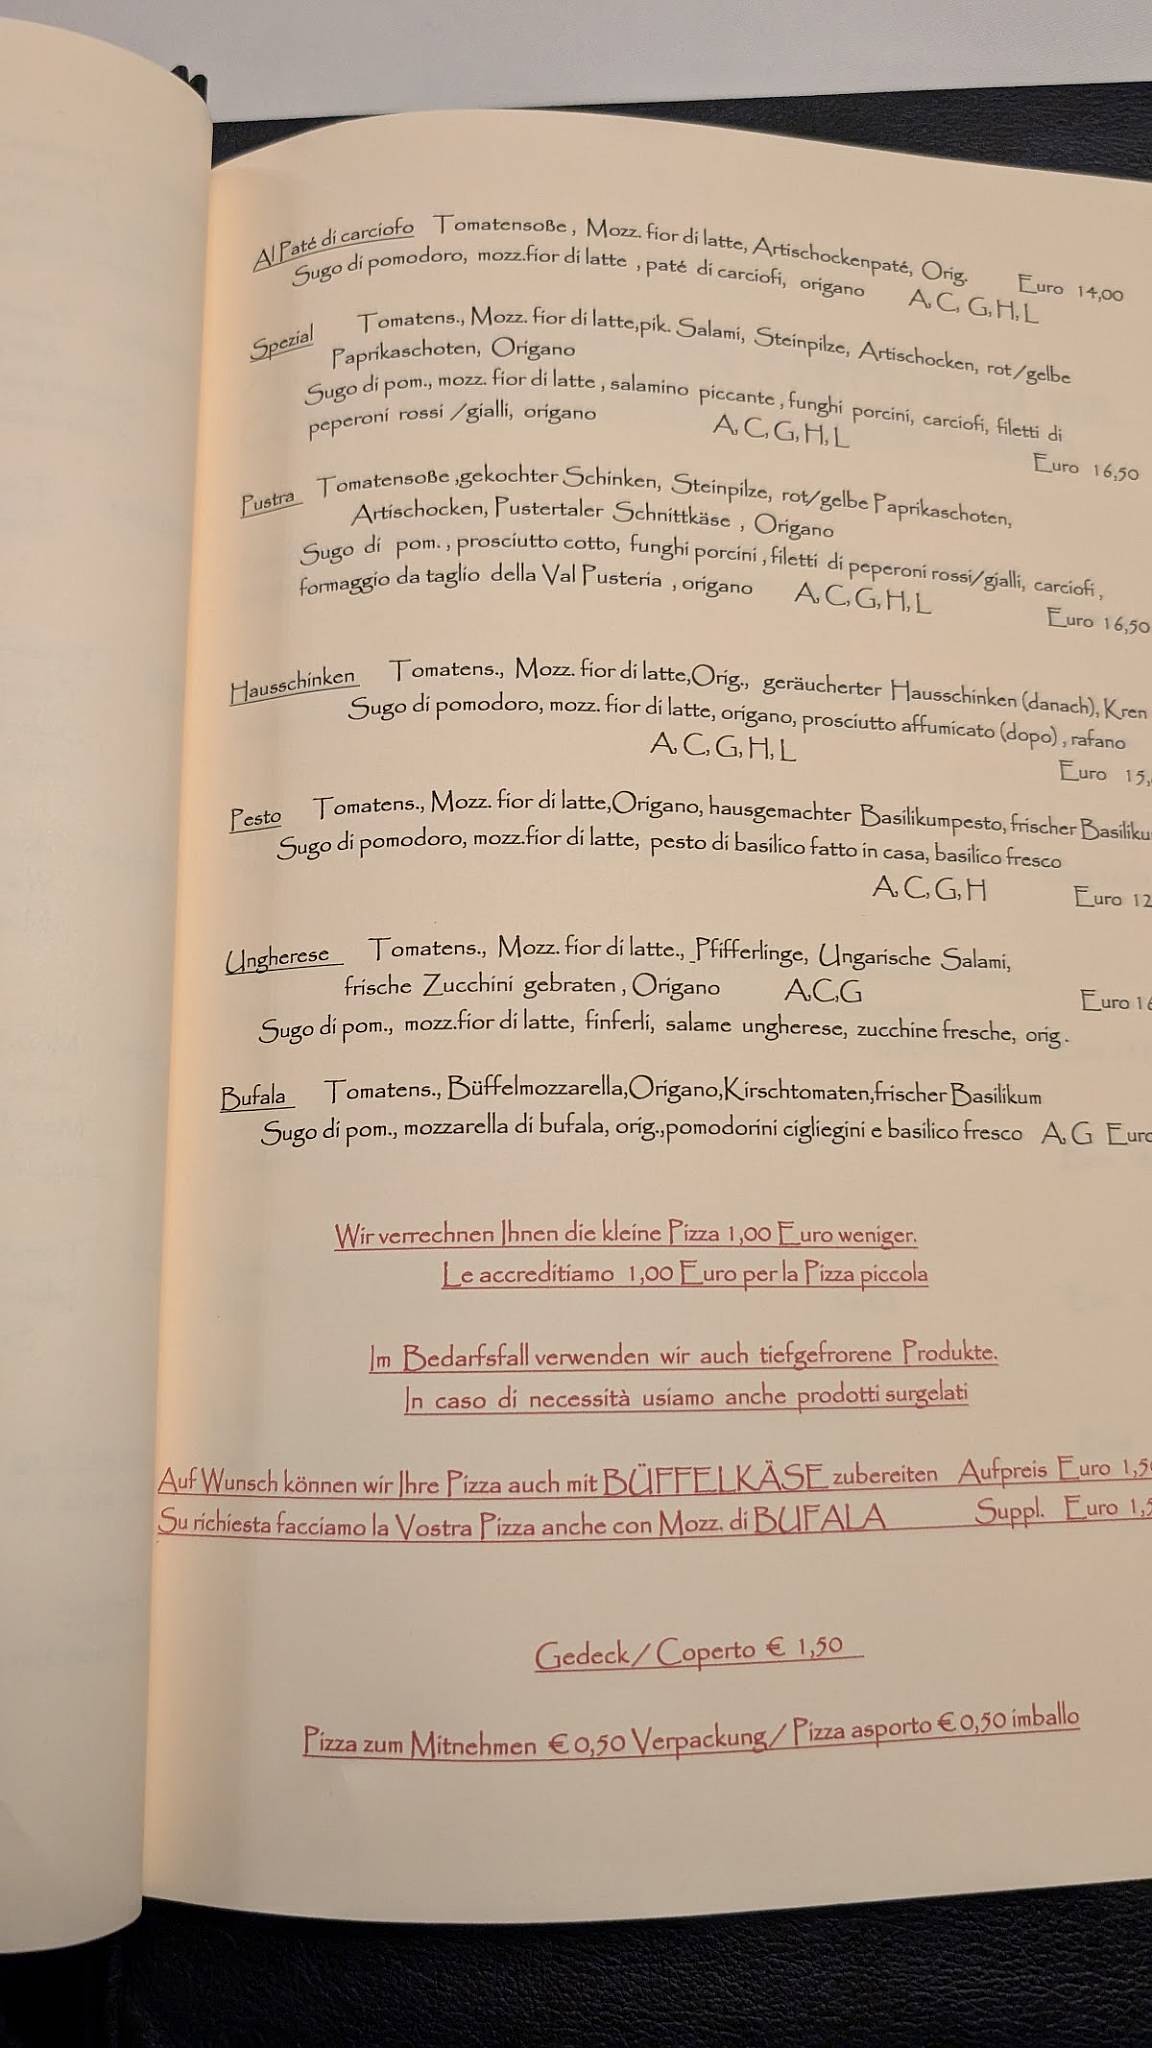 Al Paté di carciofo Tomatensoße, Mozz. fior di latte, Artischockenpaté, Orig. Euro 14,00
Sugo di pomodoro, mozz.fior di latte , paté di carciofi, origano A, C, G, H, L
Spezial Tomatens., Mozz. fior di latte,pik. Salami, Steinpilze, Artischocken, rot/gelbe
Paprikaschoten, Origano
Sugo di pom., mozz. fior di latte , salamino piccante , funghi porcini, carciofi, filetti di
peperoni rossi /gialli, origano A, C, G, H, L
Euro 16,50
Pustra Tomatensoße ,gekochter Schinken, Steinpilze, rot/gelbe Paprikaschoten,
Artischocken, Pustertaler Schnittkäse , Origano
Sugo di pom. , prosciutto cotto, funghi porcini , filetti di peperoni rossi/gialli, carciofi ,
formaggio da taglio della Val Pusteria , origano A, C, G, H, L
Euro 16,50
Hausschinken Tomatens., Mozz. fior di latte,Orig., geräucherter Hausschinken (danach), Kren
Sugo di pomodoro, mozz. fior di latte, origano, prosciutto affumicato (dopo) , rafano
A, C, G, H, L
Euro 15,
Pesto Tomatens., Mozz. fior di latte,Origano, hausgemachter Basilikumpesto, frischer Basiliku
Sugo di pomodoro, mozz.fior di latte, pesto di basilico fatto in casa, basilico fresco
A, C, G, H Euro 12
Ungherese Tomatens., Mozz. fior di latte., Pfifferlinge, Ungarische Salami,
frische Zucchini gebraten , Origano A,C,G Euro 16
Sugo di pom., mozz.fior di latte, finferli, salame ungherese, zucchine fresche, orig .
Bufala Tomatens., Büffelmozzarella,Origano,Kirschtomaten,frischer Basilikum
Sugo di pom., mozzarella di bufala, orig.,pomodorini cigliegini e basilico fresco A, G Euro
Wir verrechnen Ihnen die kleine Pizza 1,00 Euro weniger.
Le accreditiamo 1,00 Euro per la Pizza piccola
Im Bedarfsfall verwenden wir auch tiefgefrorene Produkte.
In caso di necessità usiamo anche prodotti surgelati
Auf Wunsch können wir Ihre Pizza auch mit BÜFFELKÄSE zubereiten Aufpreis Euro 1,50
Su richiesta facciamo la Vostra Pizza anche con Mozz. di BUFALA Suppl. Euro 1,5
Gedeck / Coperto € 1,50
Pizza zum Mitnehmen € 0,50 Verpackung / Pizza asporto € 0,50 imballo